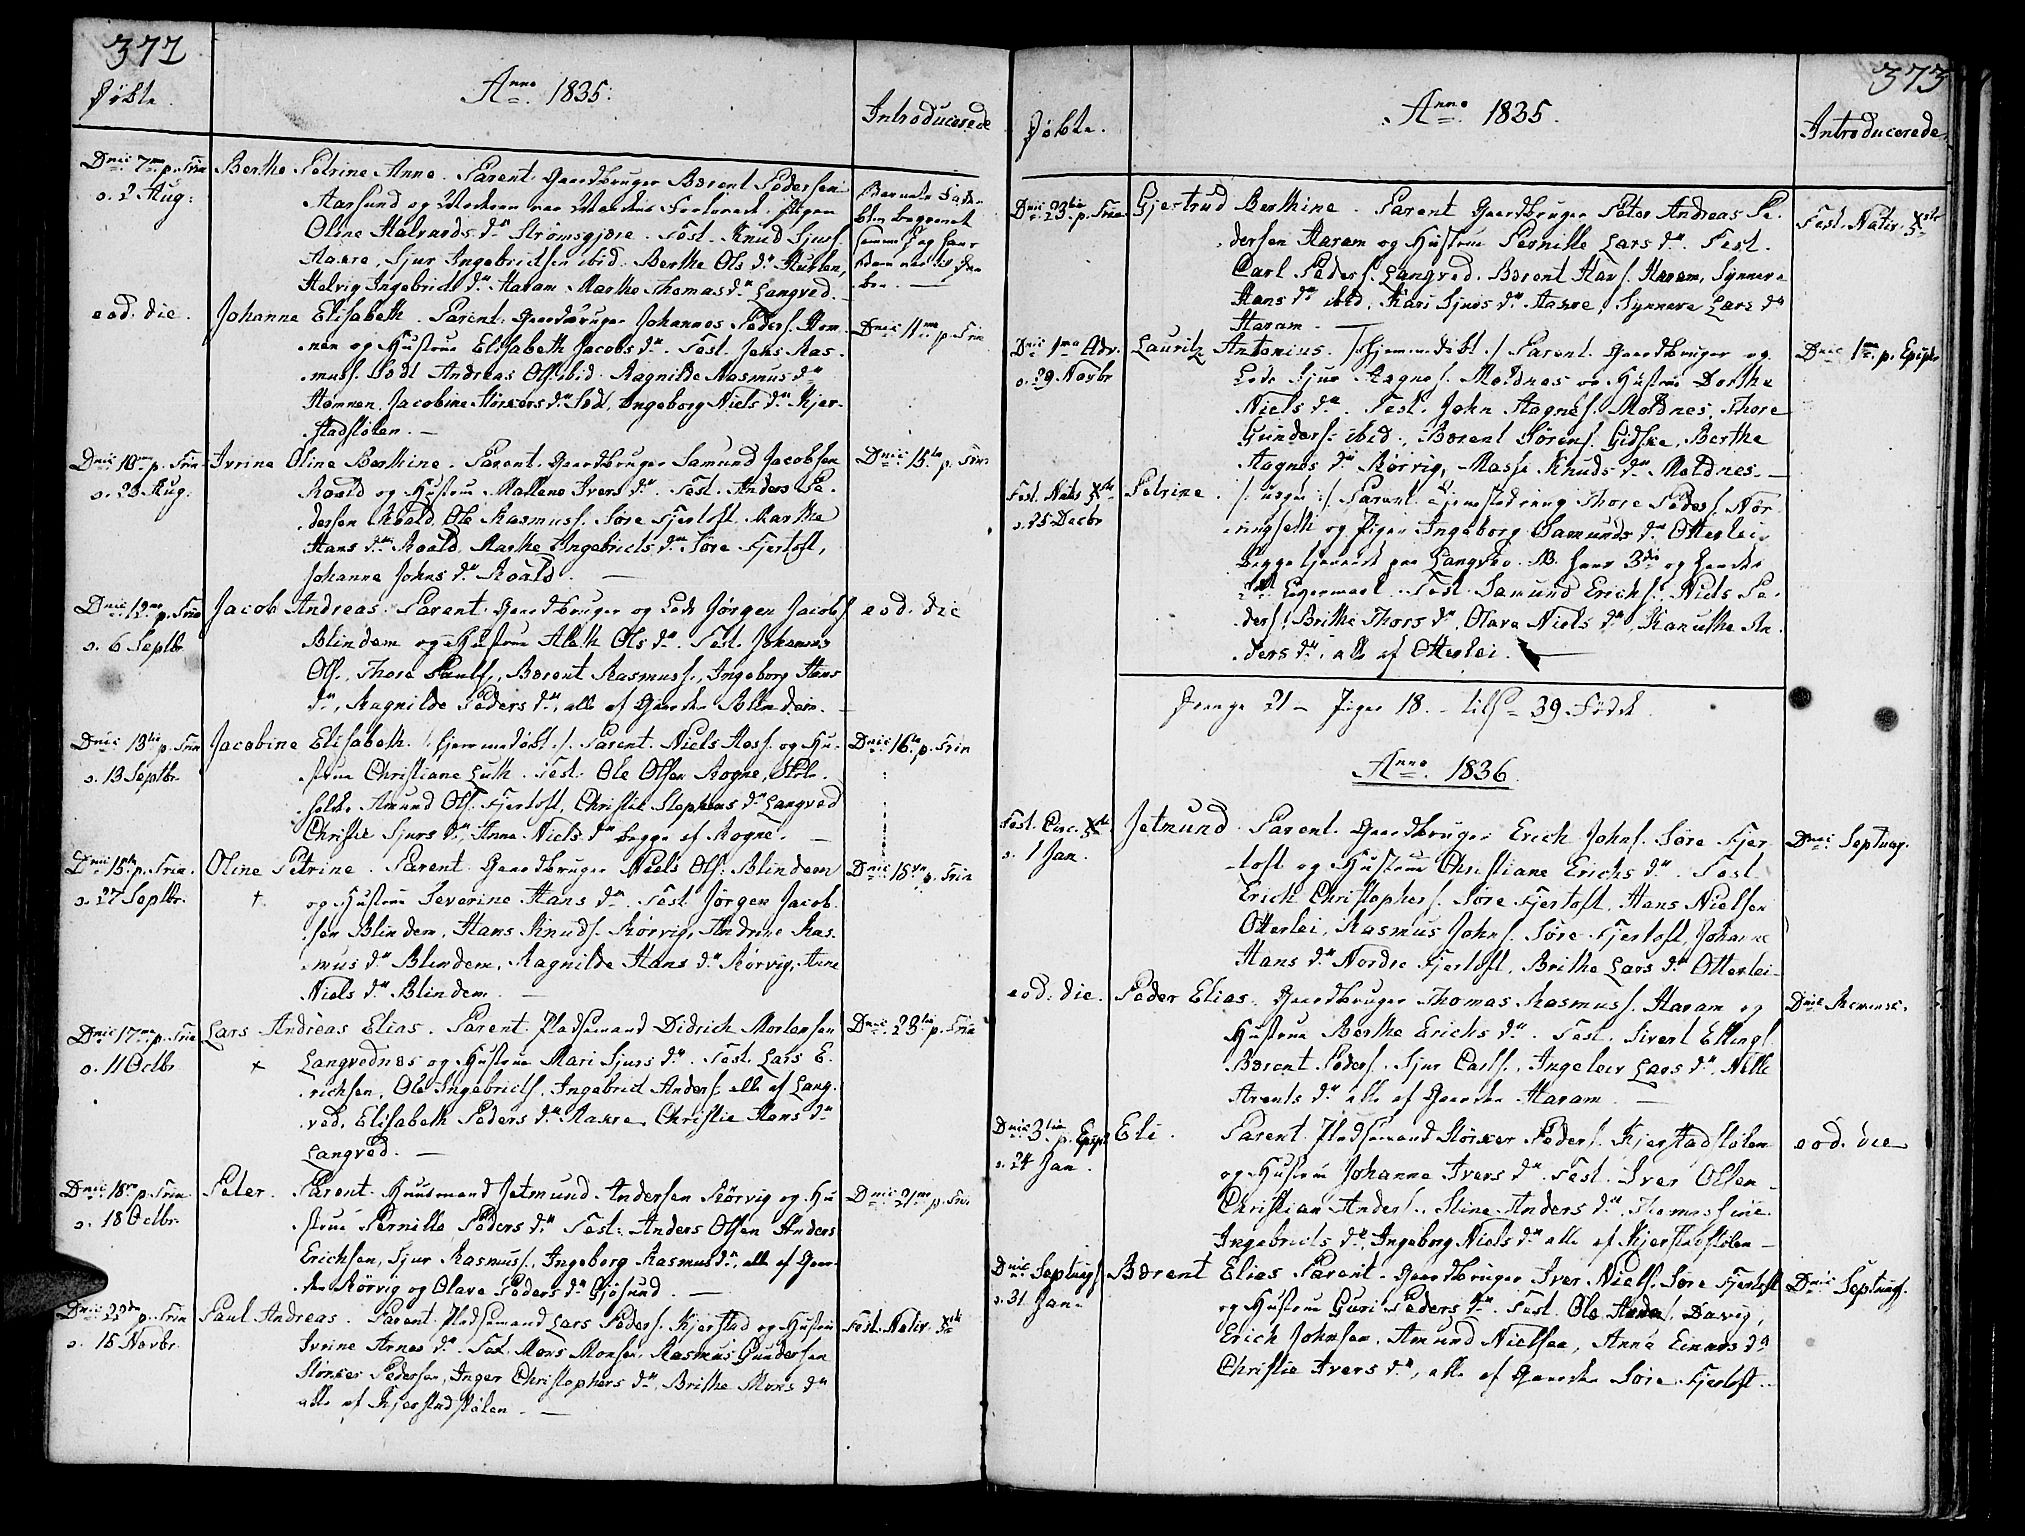 372
Døbte.
Anno 1835.
Introducerede
Dnic 7ma p. Trin
o. 2 Aug:
Berthe Petrine Anne. Parent. Gaardbruger Barent Pedersen
Aarsund og Moderen var Mandens Forlovede Pigen
Oline Halvards d. Strømsgjære. Test. Knud Sjurs.
Aakre, Sjur Ingebrictsen ibid. Berthe Ols d. Hurlen,
Helvig Ingebricts d. Haram Marthe Thomas d. Langved.
eod. die.
Johanne Elisabeth. Parent. Gaardbruger Johannes Peders. Ham-
nen og Hustrue Elisabeth Jacobs d. Test. Jens Ras-
mus. Sodl Andreas Ols. ibid. Ragnilde Rasmus d.
Hamnen, Jacobine Størkers d. Sodl, Ingeborg Niels d. Kjer-
stadstølen.
Dnic 11ma p. Trin
Dnic 10ma p. Trin
o. 23 Aug.
Ivrine Oline Berthine. Parent. Gaardbruger Samund Jacobsen
Roald og Hustrue Mallene Ivers d. Test. Anders Pe-
dersen Roald, Ole Rasmus. Søre Fjertoft. Marthe
Hans d. Roald, Marthe Ingebricts d. Søre Fjertoft,
Johanne Johns d. Roald.
Dnic 15ta p. Trin.
Dnic 12ma p. Trin
o. 6 Septbr.
Jacob Andreas. Parent. Gaardbruger og Lods Jørgen Jacobs.
Blindem og Hustrue Aleth Ols d. Test. Johannes
Ols., Thore Pauls., Barent Rasmus., Ingeborg Hans
d., Ragnilde Peders d., alle af Gaarden Blindem.
eod. die
Dnic 13tia p. Trin
o. 13 Septbr.
Jacobine Elisabeth. /: hjemmedøbt :/ Parent. Niels Aas. og Hu-
strue Christiane Luth. Test. Ole Olsen Rogne, Skole-
holder Amund Ols. Fjertoft, Christie Stephens d. Langved
Christie Sjurs d., Anne Niels d. begge af Rogne.
Dnic 16ta p. Trin
Dnic 15ta p. Trin.
o. 27 Septbr.
Oline Petrine. Parent. Gaardbruger Niels Ols. Blindem
og Hustrue Severine Hans d. Test. Jørgen Jacob-
sen Blindem, Hans Knuds. Rørvig, Andrine Ras-
mus d. Blindem, Ragnilde Hans d. Rørvig, Anne
Niels d. Blindem.
Dnic 18va p. Trin
Dnic 17ma p. Trin
o. 11 Octbr.
Lars Andreas Elias. Parent. Pladsemand Didrich Mortensen
Langvednes og Hustrue Mari Sjurs d. Test. Lars E-
richsen, Ole Ingebricts., Ingebrict Anders. alle af Lang-
ved, Elisabeth Peders d. Aakre, Christie Hans d.
Langved.
Dnic 23tia p. Trin
Dnic 18va p. Trin
o. 18 Octbr.
Peter. Parent. Huusmand Jetmund Andersen Rørvig og Hu-
strue Pernille Peders d. Test: Anders Olsen Anders
Erichsen, Sjur Rasmus., Ingeborg Rasmus d., alle af Gaar-
den Rørvig og Olave Peders d. Gjøsund.
Dnic 21ma p. Trin.
Dnic 22da p. Trin
o. 15 Novbr.
Paul Andreas. Parent. Pladsemand Lars Peders. Kjerstad og Hustrue
Ivrine Arnes d. Test. Mons Monsen, Rasmus Gundersen
Størker Pedersen, Inger Christophers d., Brithe Mons d.
alle af Kjerstadstølen.
Fest. Nativ. Xsti
373
Døbte.
Anno 1835.
Introducerede.
Dnic 23tia p. Trin
Gjertrud Berthine. Parent Gaardbruger Peter Andreas Pe-
dersen Haram og Hustrue Pernille Lars d. Test.
Carl Peders. Langved. Barent Hans. Haram, Synneve
Hans d. ibid. Kari Sjurs d. Aakre, Synneve Lars d.
Haram.
Fest. Nativ. Xsti
Dnic 1ma Adv.
o. 29 Novbr
Lauritz Antonius. /: hjemmedøbt :/ Parent. Gaardbruger og
Lods Sjur Aagnes. Moldnes og Hustrue Dorthe
Niels d. Test. John Aagnes. Moldnes, Thore
Gunders. ibid., Barent Sørens. Gidske, Berthe
Aagnes d. Rørvig, Massi Knuds d. Moldnes.
Dnic 1ma p. Epiph
Fest. Nativ. Xsti
o. 25 Decbr
Petrine. /: uægte :/ Parent. Thore Peders. Nør-
ingseth og Pigen Ingeborg Samunds d. Otterlei
begge tjenende paa Langved. NB. hans 3die og hendes
Leiermaal. Test. Samund Erichs., Niels Pe-
ders., Brithe Thors d., Olave Niels d., Kanuthe An-
ders d., alle af Otterlei.
Drenge 21 – Piger 18. – tils. 39 Fødde.
Anno 1836.
Fest. Circ. Xsti
o. 1 Jan.
Jetmund. Parent. Gaardbruger Erich Johns. Søre Fjer-
toft og Hustrue Christiane Erichs d. Test
Erich Christophers. Søre Fjertoft, Hans Nielsen
Otterlei, Rasmus Johns. Søre Fjertoft, Johanne
Hans d. Nordre Fjertoft, Brithe Lars d. Otterlei.
Dnic Septuag.
eod. die.
Peder Elias. Gaardbruger Thomas Rasmus. Haram og
Hustrue Berthe Erichs d. Test. Sivert Ellings.
Barent Peders. Sjur Carls., Ingeleiv Lars d., Nille
Arents d. alle af Gaarden Haram.
Dnic Reminisc.
Dnic 3tia p. Epiph
o. 24 Jan.
Eli. Parent. Pladsemand Størker Peders. Kjerstadstølen
og Hustrue Johanne Ivers d. Test. Iver Olsen
Christian Anders., Stine Anders d., Thomassine
Ingebricts d., Ingeborg Niels d. alle af Kjerstadstølen
eod. die
Dnic Septuag.
o. 31 Jan.
Barent Elias Parent. Gaardbruger Iver Niels. Søre Fjertoft
og Hustrue Guri Peders d. Test. Ole Anders. Davig,
Erich Johnsen, Amund Nielsen, Anne Einars d.
Christie Ivers d., alle af Gaarden Søre Fjertoft.
Dnic Septuag.